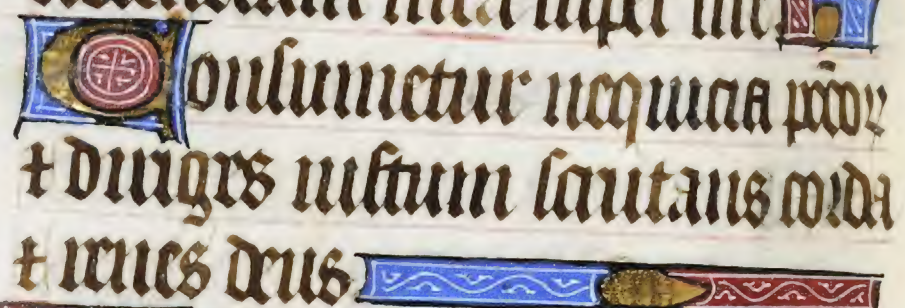 super me.
Consumetur nequicia pcc̄oꝝ
⁊ diriges iustum scrutans corda
⁊ renes deus